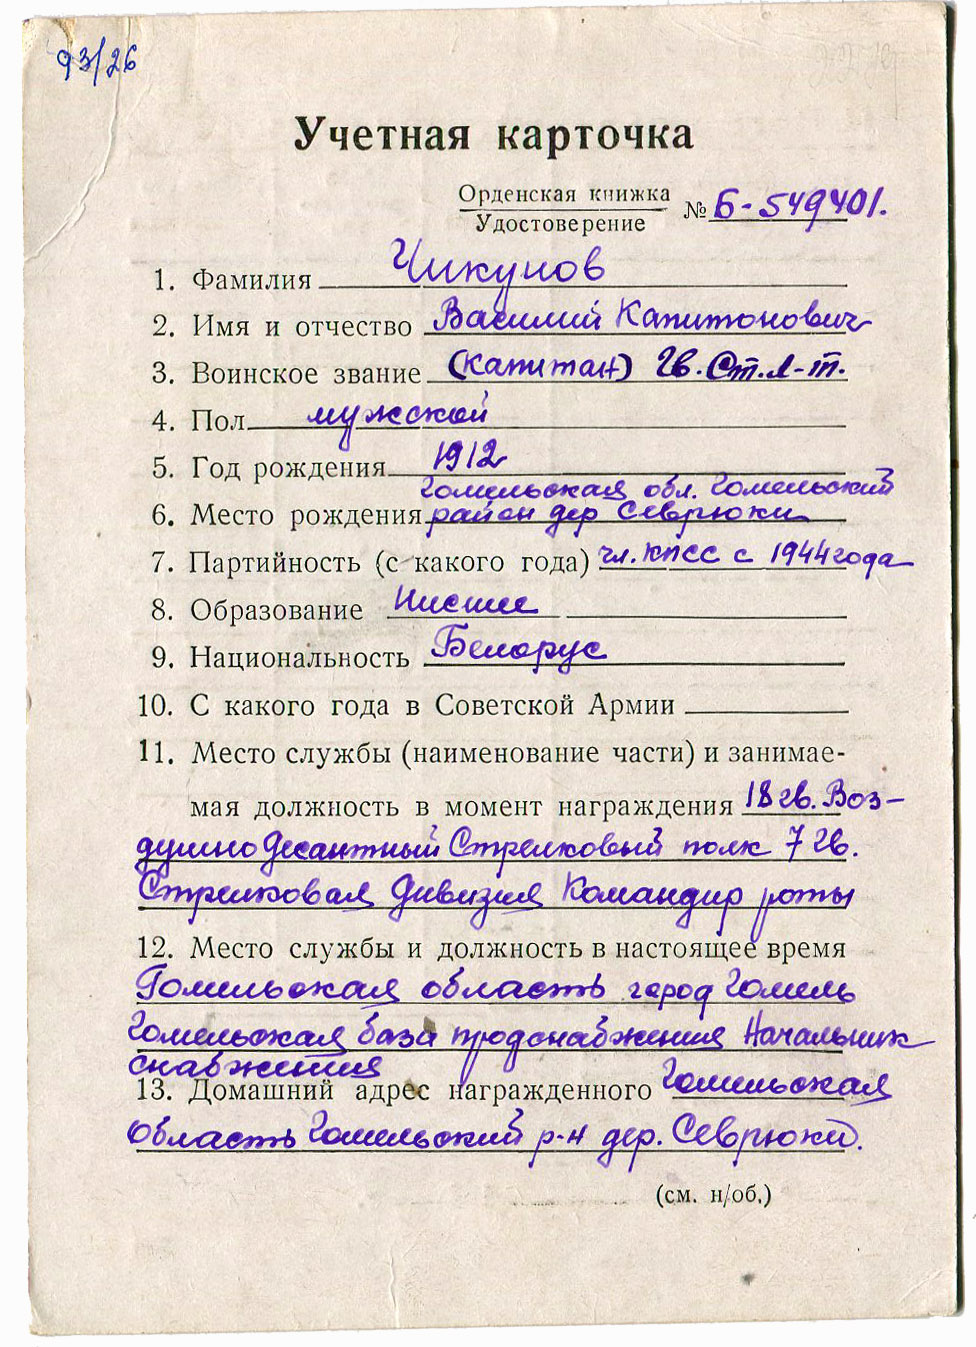 93/26
Учетная карточка
Орденская книжка
Удостоверение
№ Б-549401.
1. Фамилия Чикунов
2. Имя и отчество Василий Капитонович
3. Воинское звание (Капитан) Гв. Ст. л-т.
4. Пол мужской
5. Год рождения 1912
Гомельская обл. Гомельский
6. Место рождения район дер Севрюки
7. Партийность (с какого года) чл. КПСС с 1944 года
8. Образование Нисшее
9. Национальность Белорус
10. С какого года в Советской Армии
11. Место службы (наименование части) и занимае-
мая должность в момент награждения 18 гв. Воз-
душно Десантный Стрелковый полк 7 гв.
Стрелковая Дивизия Командир роты
12. Место службы и должность в настоящее время
Гомельская область город Гомель
Гомельская база продснабжения Начальник
снабжения
13. Домашний адрес награжденного Гомельская
область Гомельский р-н дер. Севрюки.
(см. н/об.)